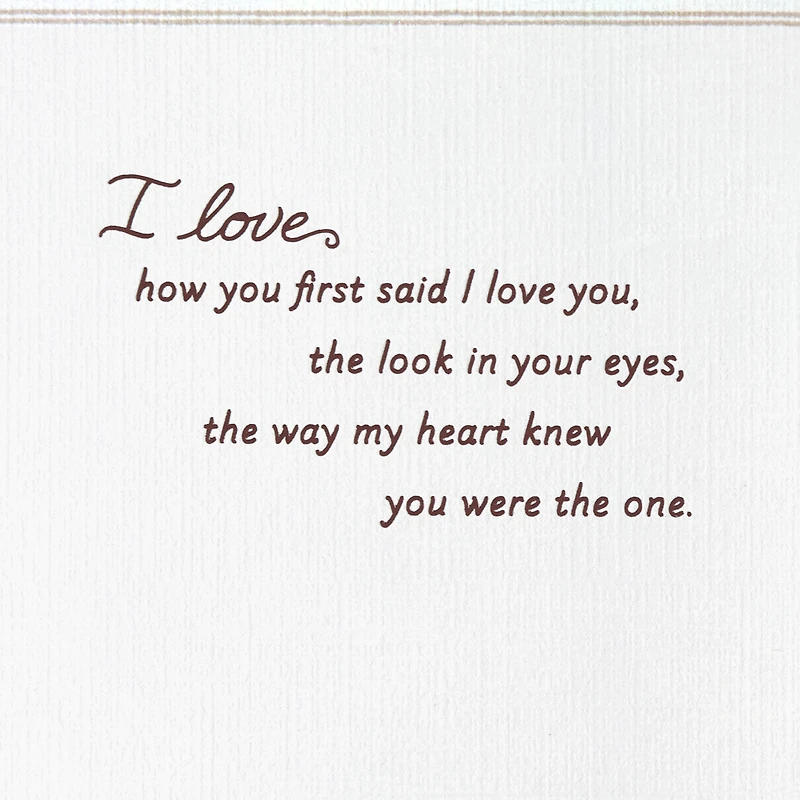 I love
how you first said I love you,
the look in your eyes,
the way my heart knew
you were the one.